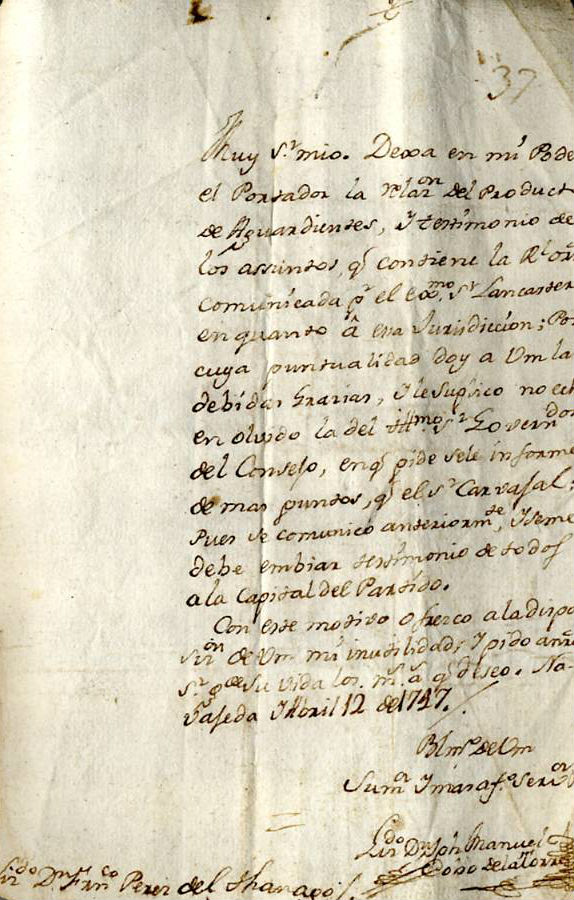 37
Muy S.r mio. Dexa en mi Pode
el Portador la relaz.on del Product
de Aguardientes, y testimonio de
los assuntos, q.e contiene la R.l or.n
comunicada p.r el exx.mo s.r Lancaster
en quanto â esa Jurisdiccion; Por
cuya puntualidad doy a Vm la
debidas Grazias, y le suplico no ech
en olvido la del Ill.mo s.r Governa.dor
del Consejo, en q.e pide sele informe
de mas puntos, q.e el s.r Carvajal;
Pues se comunicó anteriorm.te, y seme
debe embiar testimonio de todos
a la Capital del Partido.
Con este motivo ofrezco a la dispo
siz.on de Vm mi inutilidad; y pido a nr̃o
S.r g.de su vida los m.s a.s q.e deseo. Na-
valseda y Abril 12 de 1747.
Blm.o de Vm
Su m.r y mas af.o Serv.or
Liz.do D.n Jõn Manuel
Cobo de la Torre
Liz.do D.n Fran.co Perez del